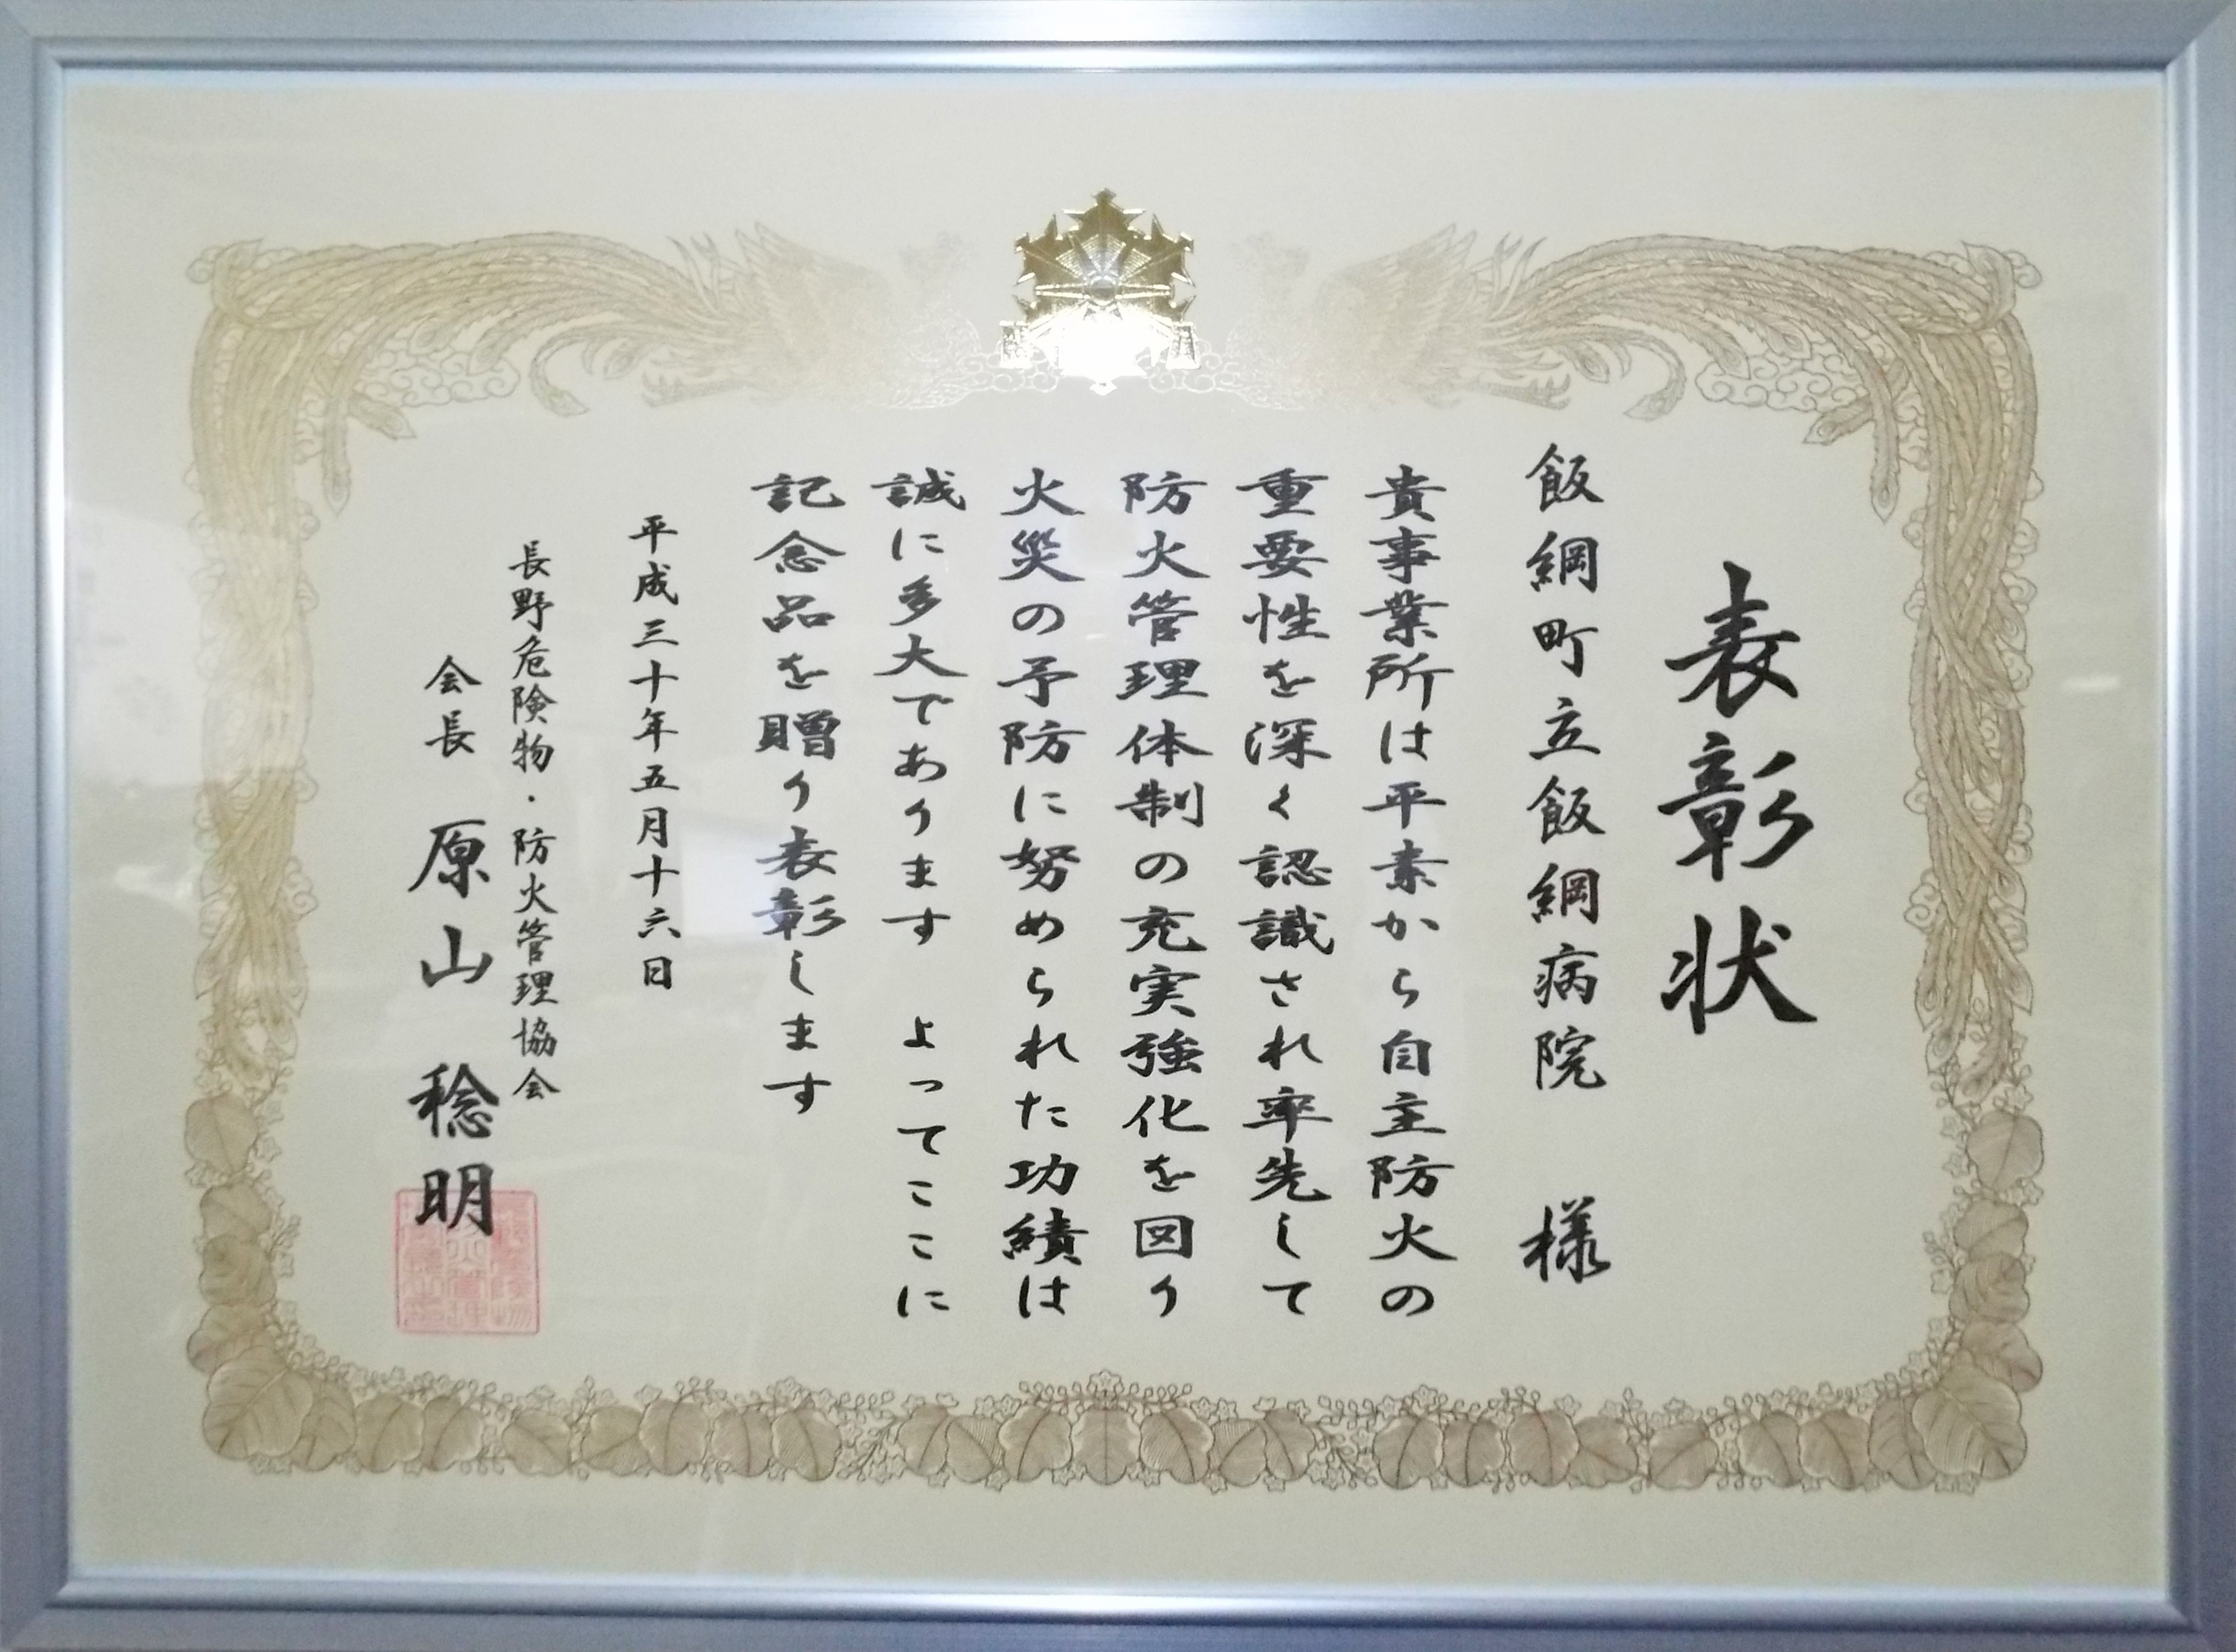 表彰状
飯綱町立飯綱病院 様
貴事業所は平素から自主防火の
重要性を深く認識され率先して
防火管理体制の充実強化を図り
火災の予防に努められた功績は
誠に多大であります よってここに
記念品を贈り表彰します
平成三十年五月十六日
長野危険物・防火管理協会
会長 原山 稔明